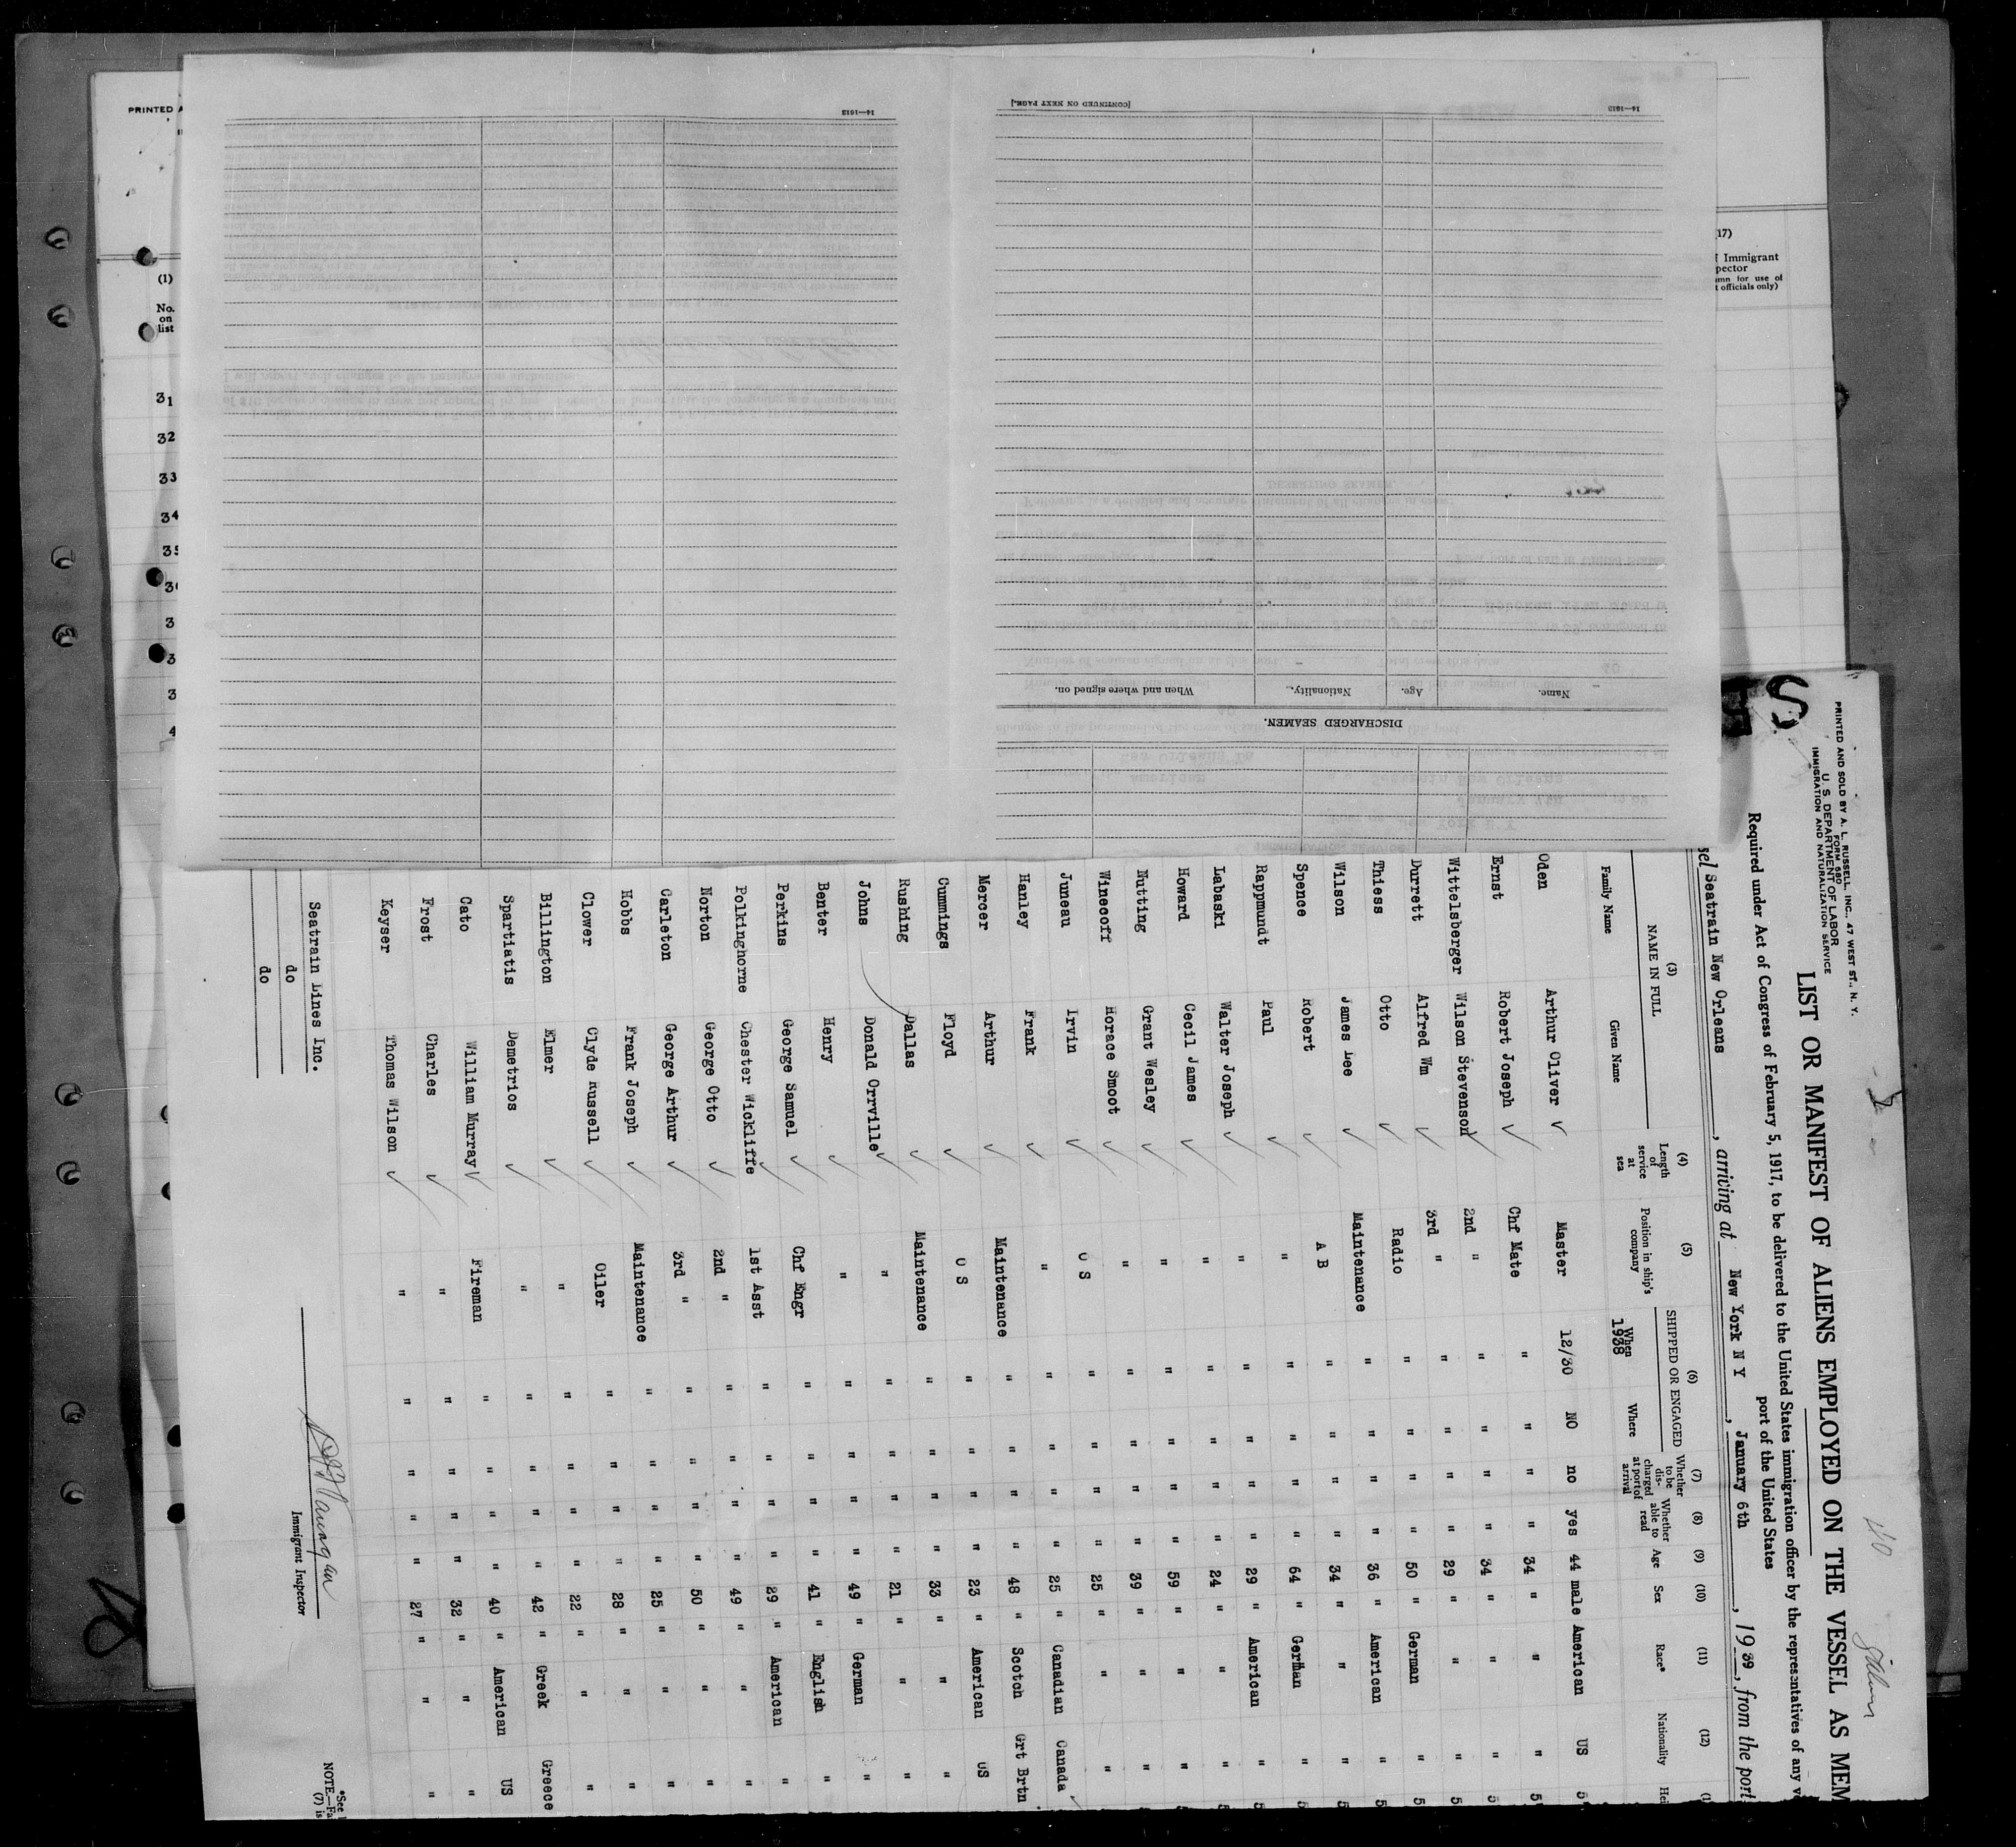 PRINTED AND SOLD BY A. L. RUSSELL, INC., 47 WEST ST., N. Y.
FORM 680
U. S. DEPARTMENT OF LABOR
IMMIGRATION AND NATURALIZATION SERVICE
LIST OR MANIFEST OF ALIENS EMPLOYED ON THE VESSEL AS MEM
Required under Act of Congress of February 5, 1917, to be delivered to the United States immigration officer by the representatives of any v
port of the United States
sel Seatrain New Orleans, arriving at New York N Y, January 6th, 1939, from the port
(3) (4) (5) (6) (7) (8) (9) (10) (11) (12)
NAME IN FULL
Family Name Given Name
Length of service at sea
Position in ship's company
SHIPPED OR ENGAGED
When 1938 Where
Whether to be discharged at port of arrival
Whether able to read
Age Sex Race* Nationality Hei
Oden Arthur Oliver ✓ Master 12/30 NO no yes 44 male American US 5
Ernst Robert Joseph ✓ Chf Mate " " " " 34 " " " 5
Wittelsberger Wilson Stevenson ✓ 2nd " " " " " 34 " " " 5
Durrett Alfred Wm ✓ 3rd " " " " " 29 " " " 5
Thiess Otto ✓ Radio " " " " 50 " German " 5
Wilson James Lee ✓ Maintenance " " " " 36 " American " 5
Spence Robert ✓ A B " " " " 34 " " " 5
Rappmundt Paul ✓ " " " " " 64 " German " 5
Labaski Walter Joseph ✓ " " " " " 29 " American " 5
Howard Cecil James ✓ " " " " " 24 " " " 5
Nutting Grant Wesley ✓ " " " " " 59 " " " 5
Winecoff Horace Smoot ✓ " " " " " 39 " " " 5
Juneau Irvin ✓ O S " " " " 25 " " "
Hanley Frank ✓ " " " " " 25 " Canadian Canada
Mercer Arthur ✓ Maintenance " " " " 48 " Scotch Grt Brtn
Cummings Floyd ✓ O S " " " " 23 " American US
Rushing Dallas ✓ Maintenance " " " " 33 " " "
Johns Donald Orrville ✓ " " " " " 21 " " "
Benter Henry ✓ " " " " " 49 " German "
Perkins George Samuel ✓ Chf Engr " " " " 41 " English "
Polkinghorne Chester Wickliffe ✓ 1st Asst " " " " 29 " American "
Norton George Otto ✓ 2nd " " " " " 49 " " "
Carleton George Arthur ✓ 3rd " " " " " 50 " " "
Hobbs Frank Joseph ✓ Maintenance " " " " 25 " " "
Clower Clyde Russell ✓ Oiler " " " " 28 " " "
Billington Elmer ✓ " " " " " 22 " " "
Spartiatis Demetrios ✓ " " " " " 42 " Greek Greece
Cato William Murray ✓ Fireman " " " " 40 " American US
Frost Charles ✓ " " " " " 32 " " "
Keyser Thomas Wilson ✓ " " " " " 27 " " "
Seatrain Lines Inc.
do
do
Immigrant Inspector
*See
NOTE.—Fa
(7) is
14—1613
[CONTINUED ON NEXT PAGE.]
14—1613
DISCHARGED SEAMEN.
Name. Age. Nationality. When and where signed on.
PRINTED A
(1)
No. on list
31
32
33
34
35
3
3
3
3
4
17)
f Immigrant
pector
umn for use of
t officials only)